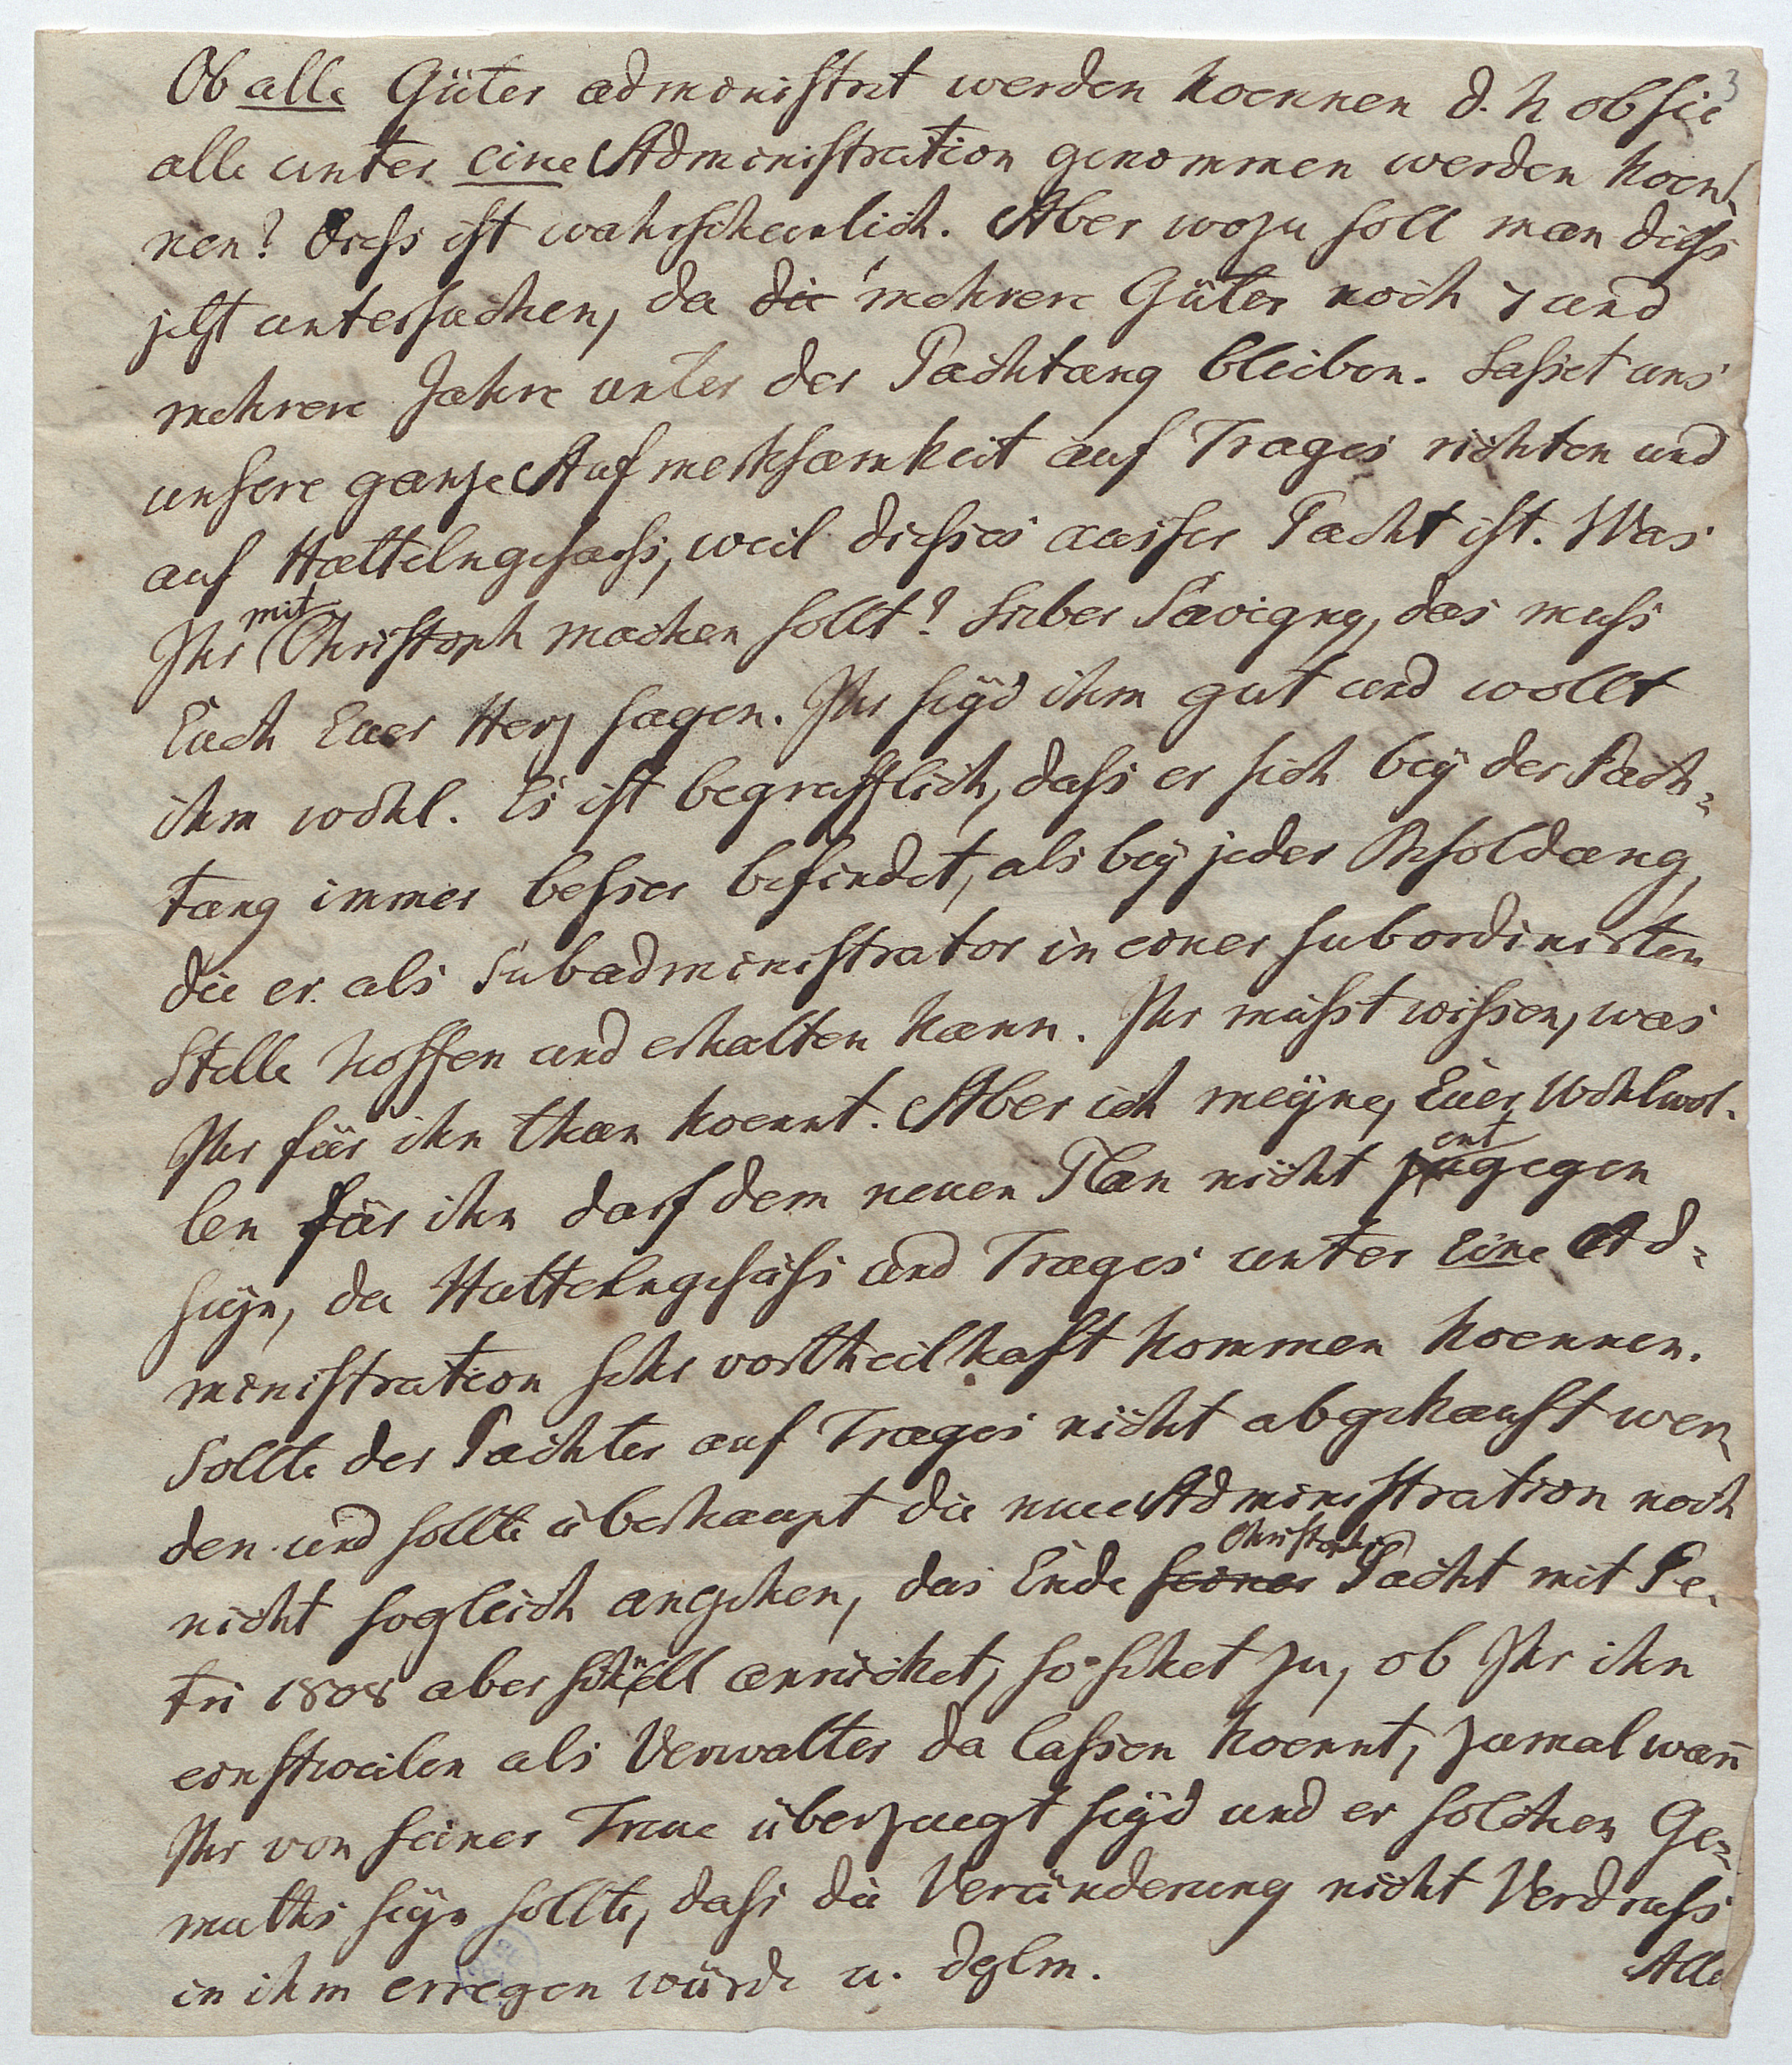 3
Ob alle Güter administrirt werden koennen d. h ob sie
alle unter eine Administration genommen werden koen¬
nen? Diess ist wahrscheinlich. Aber wozu soll man diess
jetzt untersuchen, da die mehrere Güter noch 7 und
mehrere Jahre unter der Pachtung bleiben. Lasset uns
unsere ganze Aufmerksamkeit auf Trages richten und
auf Hüttelngesaess, weil dieses ausser Pacht ist. Was
Ihr mit Christoph machen sollt? Lieber Savigny, das muss
Euch Euer Herz sagen. Ihr seyd ihm gut und wollt
ihm wohl. Es ist begreifflich, dass er sich bey der Pach¬
tung immer besser befindet, als bey jeder Besoldung,
die er als Subadministrator in einer subordinirten
Stelle hoffen und erhalten kann. Ihr müsst wissen, was
Ihr für ihn thun koennt. Aber ich meyne, Euer Wohlwol¬
len für ihn darf dem neuen Plan nicht entgegen
seyn, da Hüttelngesäss und Trages unter Eine Ad¬
ministration sehr vortheilhaft kommen koennen.
Sollte der Pachter auf Trages nicht abgekauft wer¬
den und sollte überhaupt die neue Administration noch
nicht sogleich angehen, das Ende seiner Christophs Pacht mit Pe¬
tri 1808 aber schnell anrücket, so sehet zu, ob Ihr ihn
einstweilen als Verwalter da lassen koennt, zumal wan̄
Ihr von seiner Treue überzeugt seyd und er solchen Ge¬
muths seyn sollte, dass die Veränderung nicht Verdruss
in ihm erregen würde u. dglm.
Alle